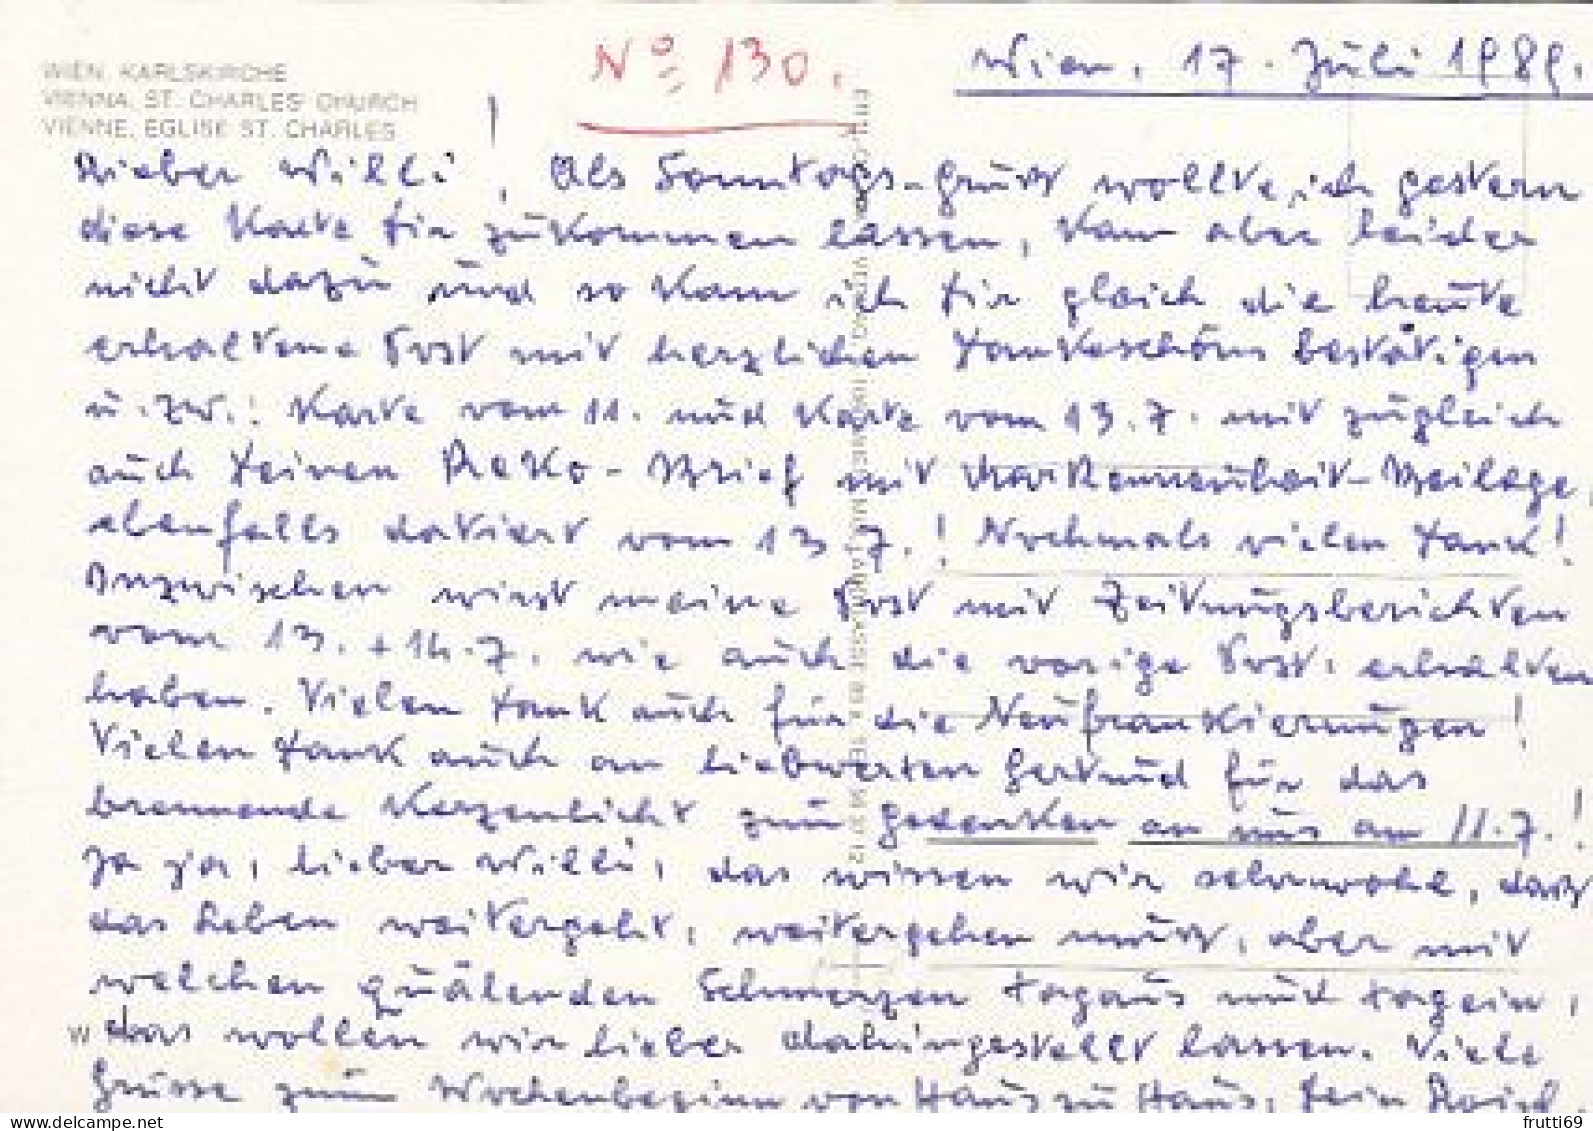 WIEN, KARLSKIRCHE
VIENNA, ST. CHARLES' CHURCH
VIENNE, EGLISE ST. CHARLES
No 130.
Wien, 17. Juli 1989.
Lieber Willi! Als Sonntags-Gruss wollte ich gestern
diese Karte Dir zukommen lassen, kam aber leider
nicht dazu und so kann ich Dir gleich die heute
erhaltene Post mit herzlichen Dankeschön bestätigen
u. zw.: Karte vom 11. und Karte vom 13.7. mit zugleich
auch Deinen Reko-Brief mit Markenneuheit-Beilage,
ebenfalls datiert vom 13.7.! Nochmals vielen Dank!
Inzwischen wirst meine Post mit Zeitungsberichten
vom 13. + 14.7. wie auch die vorige Post erhalten
haben. Vielen Dank auch für die Neufrankierungen!
Vielen Dank auch an liebwerten Gertrud für das
brennende Kerzenlicht zum Gedenken an uns am 11.7.!
Ja ja, lieber Willi, das wissen wir sehrwohl, dass
das Leben weitergeht, weitergehen muss, aber mit
welchen quälenden Schmerzen tagaus und tagein,
das wollen wir lieber dahingestellt lassen. Viele
Grüsse zum Wochenbeginn von Haus zu Haus, Dein
www.delcampe.net
frutti69